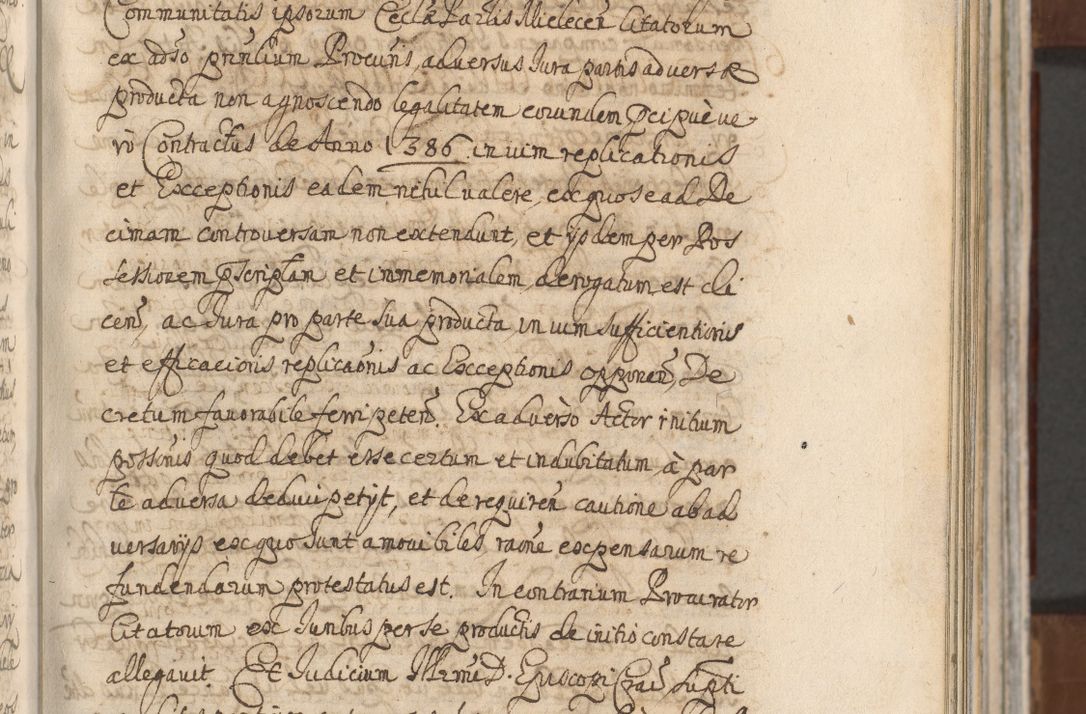 Communitatis ipsorum Ecclae Parlis Mielecen Citatorum
ex adso prnlium Procuris, adversus Jura partis adversae
producta non agnoscendo legalitatem eorundem pcipuè ve
rò Contractus de Anno 1386 in vim replicationis
et Exceptionis eadem nihil valere, ex quo sead De
cimam controversam non extendunt, et ijsdem per Pos
sessiorem pscriptam et immemorialem derogatum est di
cen, ac Jura pro parte sua producta in vim sufficientioris
et efficacioris replicaonis ac Exceptionis opponen, De
cretum favorabile ferri peten. Ex adverso Actor initium
possonis quod debet esse certum et indubitatum, à par
te adversa deduci petijt, et de requiren cautione ab ad
versarijs ex quo sunt amovibiles raone expensarum re
fundendarum protestatus est. In contrarium Procurator
Citatorum ex Juribus per se productis de initio constare
allegavit Et Judicium Illrmi D. Episcopi Crac Supti